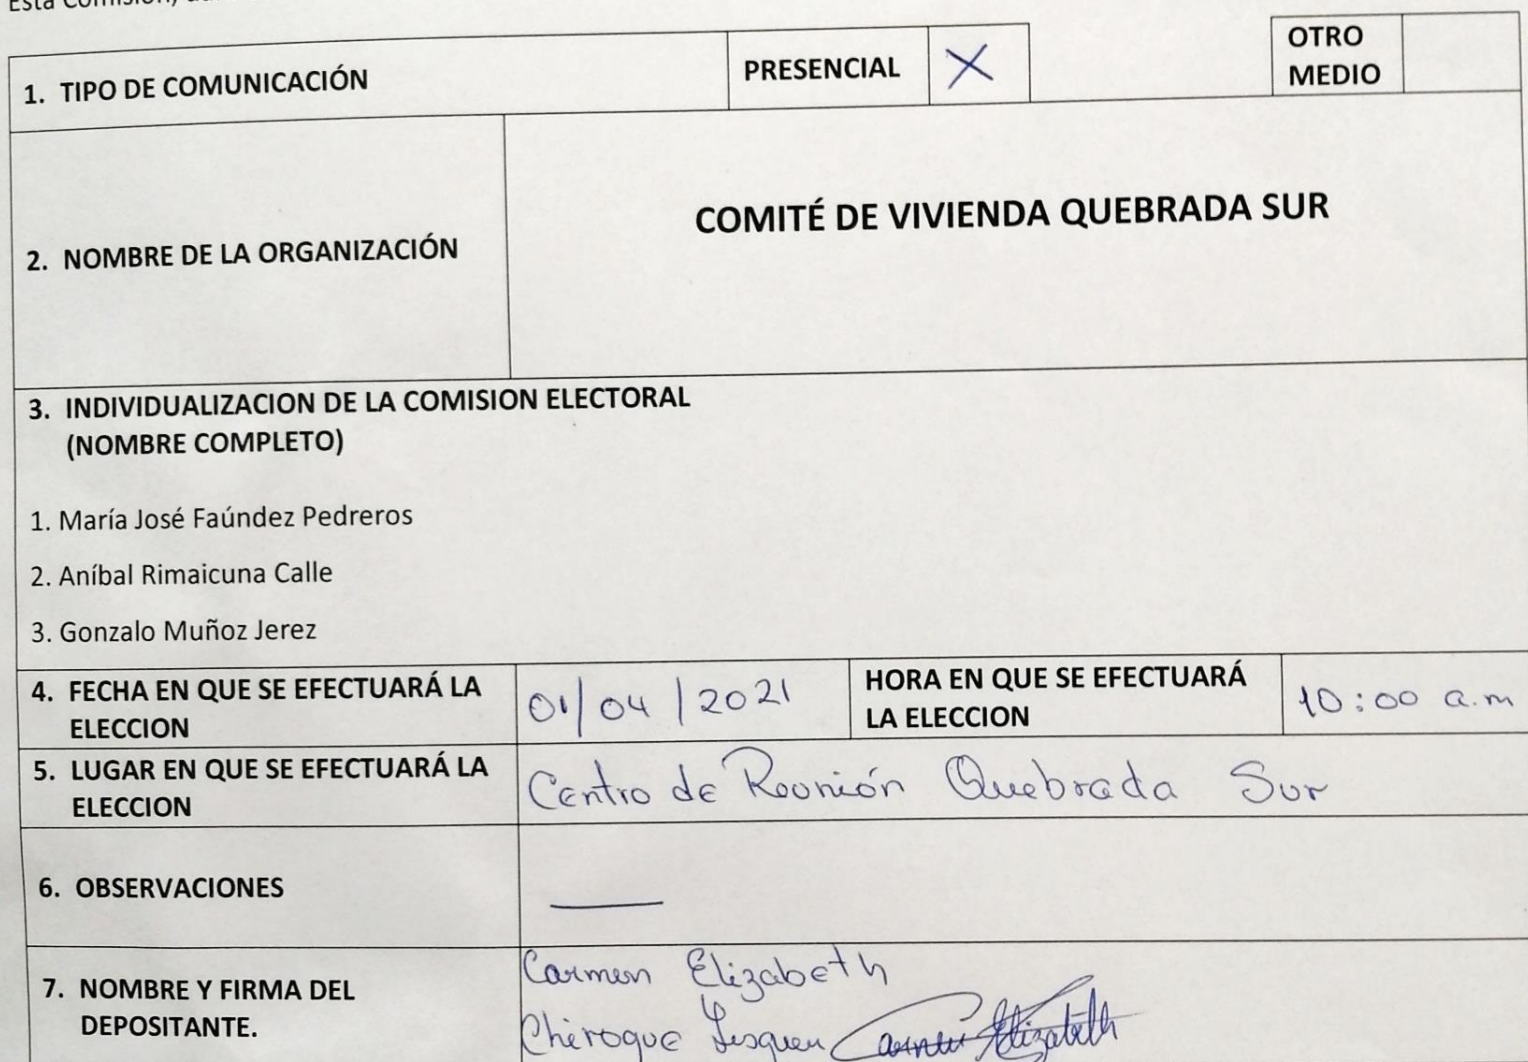 Esta Comisión,
1. TIPO DE COMUNICACIÓN PRESENCIAL X OTRO MEDIO
2. NOMBRE DE LA ORGANIZACIÓN
COMITÉ DE VIVIENDA QUEBRADA SUR
3. INDIVIDUALIZACION DE LA COMISION ELECTORAL
(NOMBRE COMPLETO)
1. María José Faúndez Pedreros
2. Aníbal Rimaicuna Calle
3. Gonzalo Muñoz Jerez
4. FECHA EN QUE SE EFECTUARÁ LA
ELECCION
01/04/2021
HORA EN QUE SE EFECTUARÁ
LA ELECCION
10:00 a.m
5. LUGAR EN QUE SE EFECTUARÁ LA
ELECCION
Centro de Reunión Quebrada Sur
6. OBSERVACIONES
7. NOMBRE Y FIRMA DEL
DEPOSITANTE.
Carmen Elizabeth
Chiroque Carmen Elizabeth